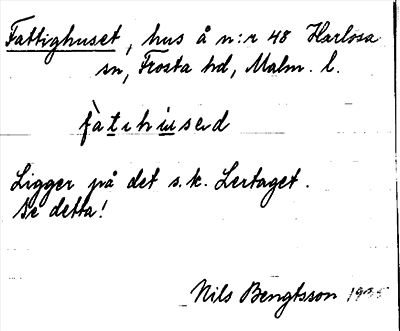 Fattighuset, hus å n:r 48 Harlösa
sn, Frosta hd, Malm. l.
Ligger på det s.k. Lertaget.
Se detta!
Nils Bengtsson 1935